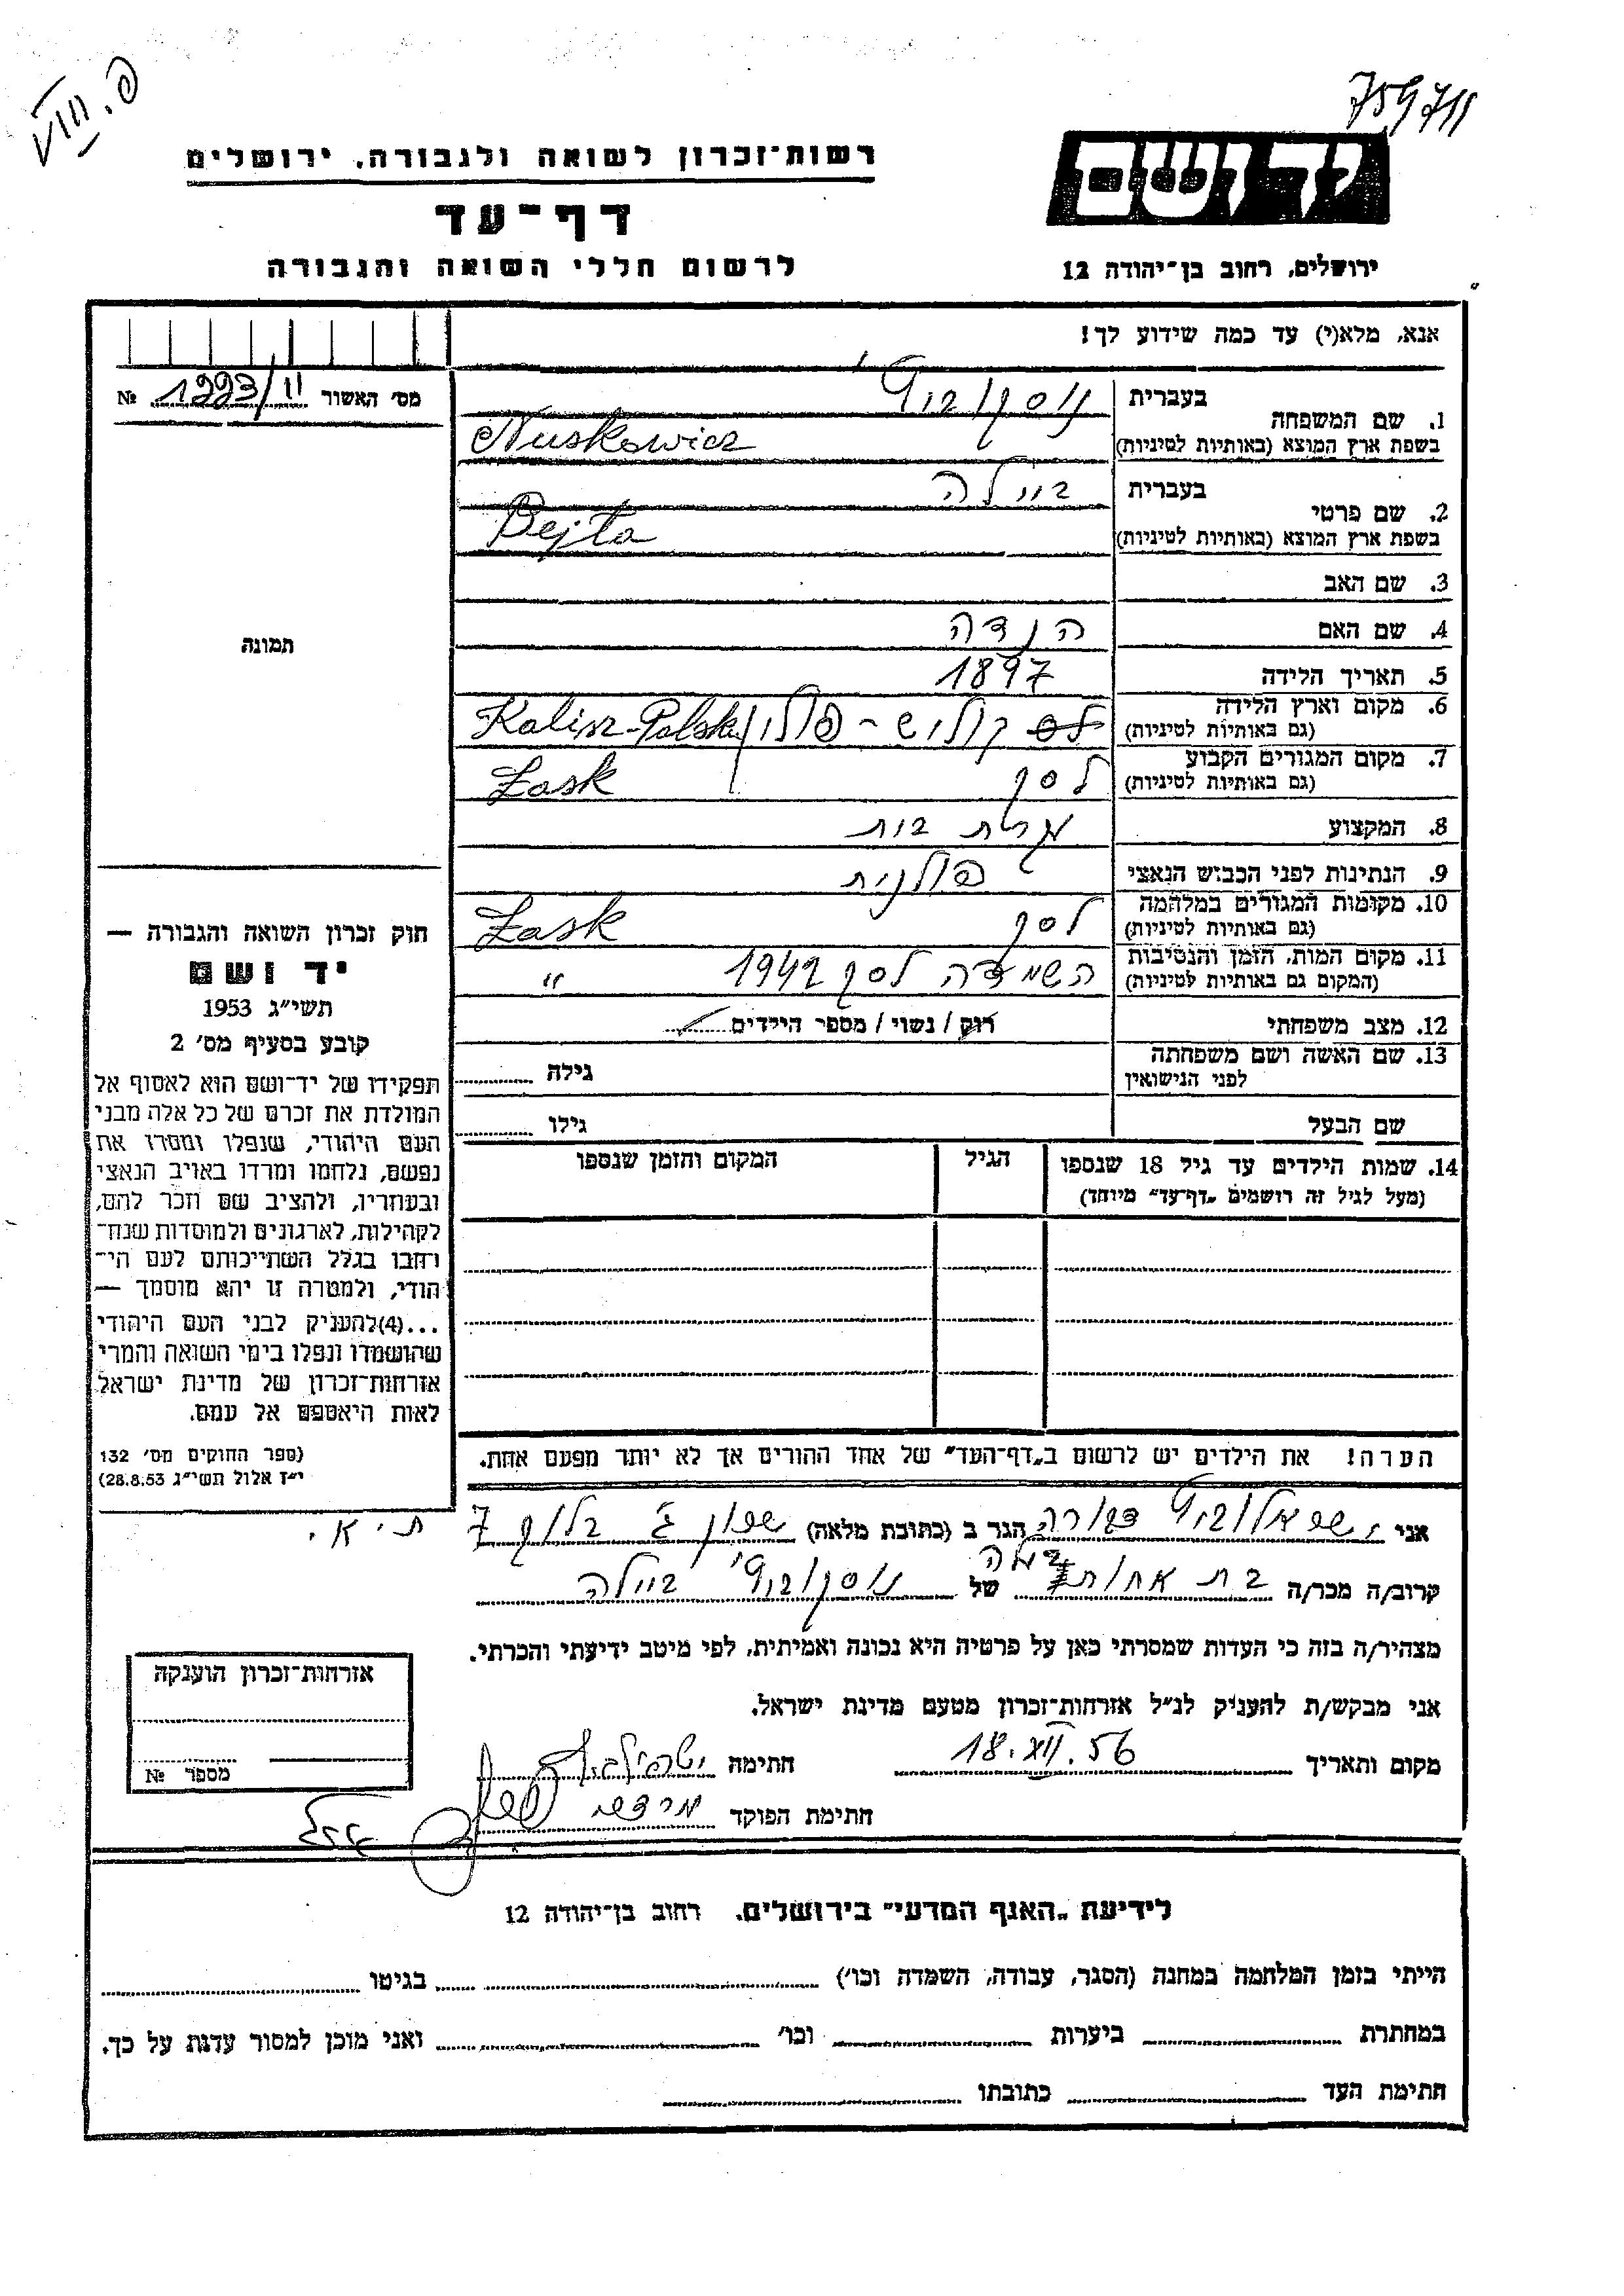 פ. VIII
759711
יד ושם
רשות־זכרון לשואה ולגבורה, ירושלים
דף־עד
לרשום חללי השואה והגבורה
ירושלים, רחוב בן־יהודה 12
אנא, מלא(י) עד כמה שידוע לך!
מס׳ האשור 1993/II №
1. שם המשפחה
בעברית נוסקוביץ
בשפת ארץ המוצא (באותיות לטיניות) Nuskowicz
2. שם פרטי
בעברית ביילה
בשפת ארץ המוצא (באותיות לטיניות) Bejla
3. שם האב
4. שם האם הנדה
5. תאריך הלידה 1897
6. מקום וארץ הלידה
(גם באותיות לטיניות) קוליש - פולין Kalisz-Polska
7. מקום המגורים הקבוע
(גם באותיות לטיניות) לסק Łask
8. המקצוע עקרת בית
9. הנתינות לפני הכבוש הנאצי פולנית
10. מקומות המגורים במלחמה
(גם באותיות לטיניות) לסק Łask
11. מקום המות, הזמן והנסיבות
(המקום גם באותיות לטיניות) השמדה לסק 1942 "
12. מצב משפחתי רוק / נשוי / מספר הילדים
13. שם האשה ושם משפחתה
לפני הנישואין
גילה
שם הבעל
גילו
14. שמות הילדים עד גיל 18 שנספו
(מעל לגיל זה רושמים „דף־עד״ מיוחד)
הגיל
המקום והזמן שנספו
תמונה
חוק זכרון השואה והגבורה —
יד ושם
תשי״ג 1953
קובע בסעיף מס׳ 2
תפקידו של יד־ושם הוא לאסוף אל
המולדת את זכרם של כל אלה מבני
העם היהודי, שנפלו ומסרו את
נפשם, נלחמו ומרדו באויב הנאצי
ובעוזריו, ולהציב שם וזכר להם,
לקהילות, לארגונים ולמוסדות שנח־
רחבו בגלל השתייכותם לעם הי־
הודי, ולמטרה זו יהא מוסמך —
...(4)להעניק לבני העם היהודי
שהושמדו ונפלו בימי השואה והמרי
אזרחות־זכרון של מדינת ישראל
לאות היאספם אל עמם.
(ספר החוקים מס׳ 132
י״ז אלול תשי״ג 28.8.53)
הערה! את הילדים יש לרשום ב„דף־העד״ של אחד ההורים אך לא יותר מפעם אחת.
אני הגר ב (כתובת מלאה) שכון ג׳ בלוק 7 ת.א.
קרוב/ה מכר/ה בת אחותה של נוסקוביץ ביילה
מצהיר/ה בזה כי העדות שמסרתי כאן על פרטיה היא נכונה ואמיתית, לפי מיטב ידיעתי והכרתי.
אני מבקש/ת להעניק לנ״ל אזרחות־זכרון מטעם מדינת ישראל.
מקום ותאריך 18.XII.56 חתימה
חתימת הפוקד
אזרחות־זכרון הוענקה
מספר №
לידיעת „האגף המדעי״ בירושלים, רחוב בן־יהודה 12
הייתי בזמן המלחמה במחנה (הסגר, עבודה, השמדה וכו׳) בגיטו
במחתרת ביערות וכו׳ ואני מוכן למסור עדות על כך.
חתימת העד כתובתו